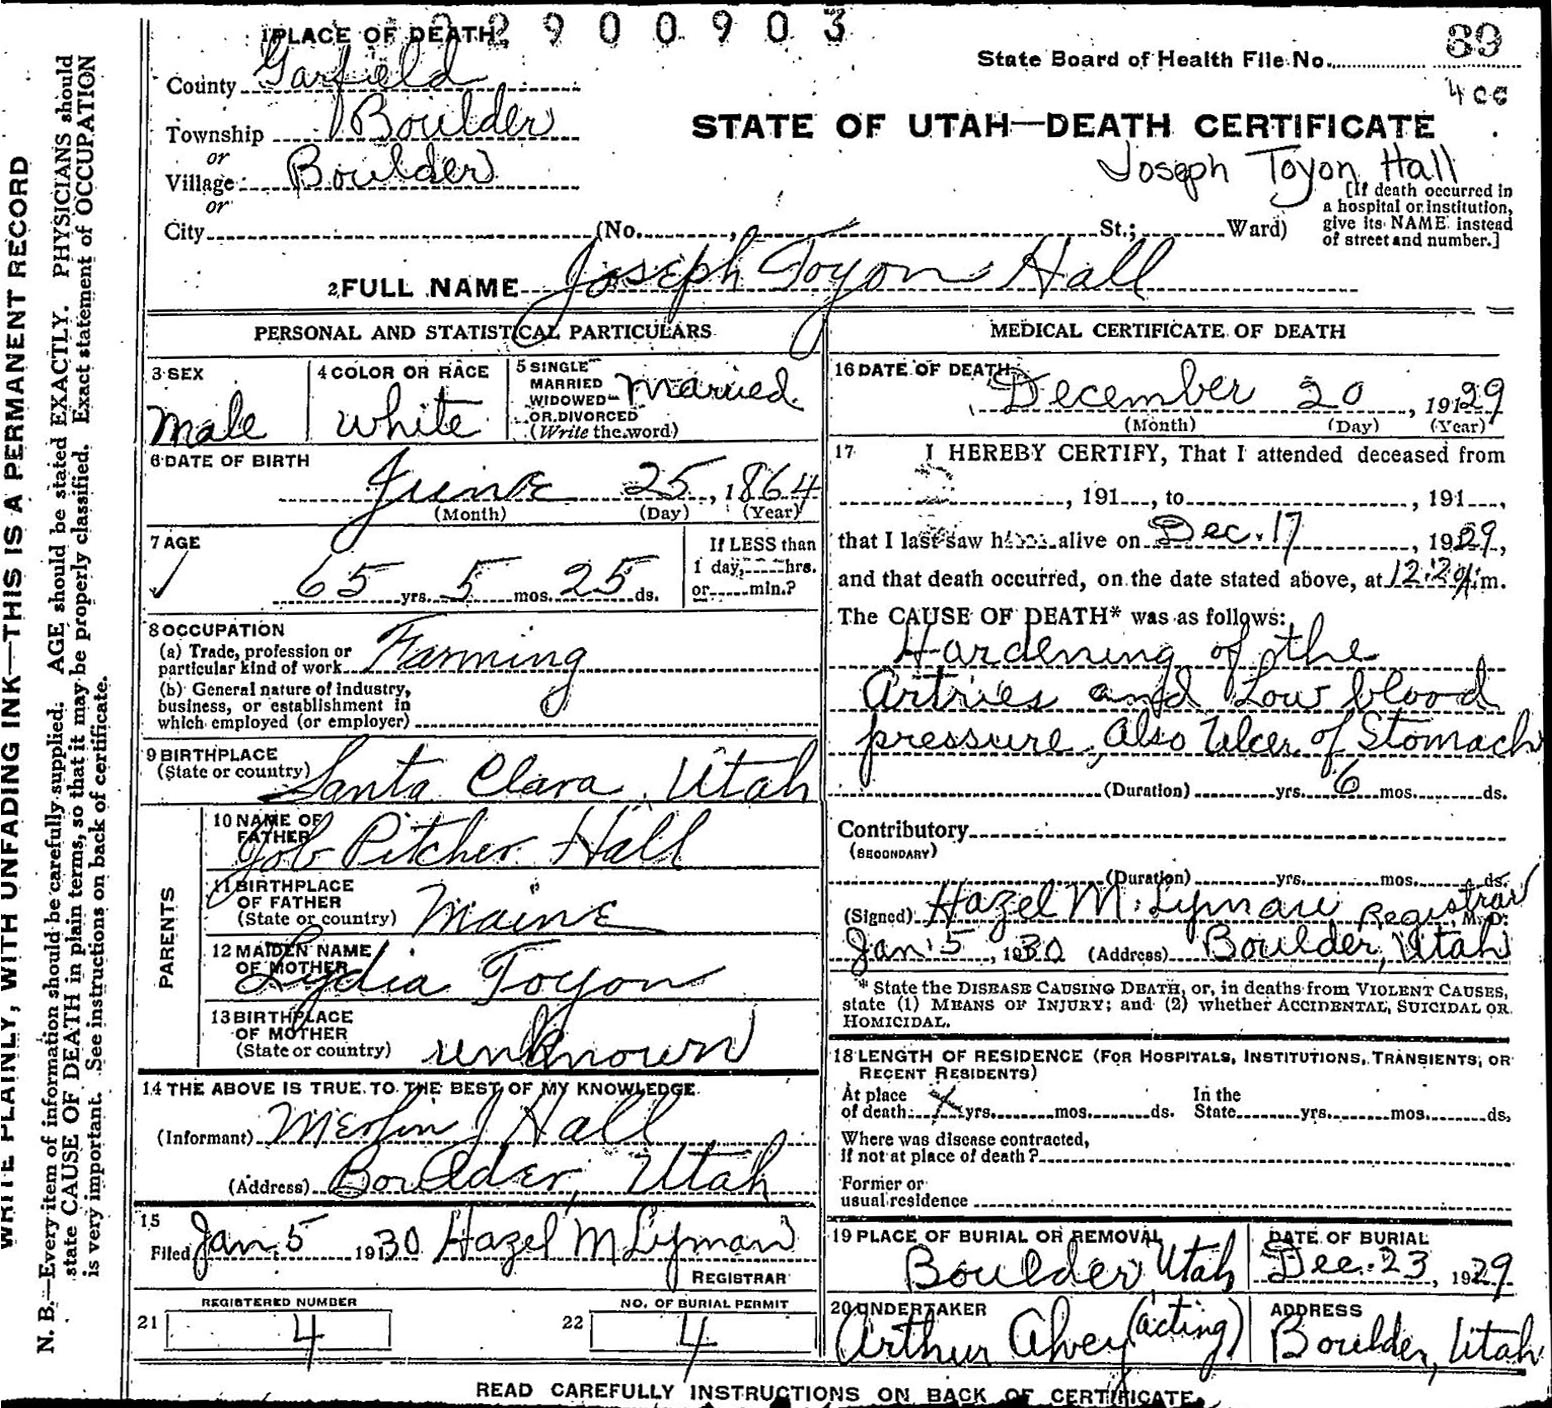 1 PLACE OF DEATH 2900903
State Board of Health File No. 89
4 cc
County Garfield
Township Boulder
or
Village Boulder
or
City (No. , St.; Ward)
STATE OF UTAH—DEATH CERTIFICATE
Joseph Toyon Hall
[If death occurred in
a hospital or institution,
give its NAME instead
of street and number.]
2 FULL NAME Joseph Toyon Hall
PERSONAL AND STATISTICAL PARTICULARS
3 SEX
male
4 COLOR OR RACE
white
5 SINGLE
MARRIED
WIDOWED
OR DIVORCED
(Write the word)
married
6 DATE OF BIRTH
June 25, 1864
(Month) (Day) (Year)
7 AGE
65 yrs. 5 mos. 25 ds.
If LESS than
1 day, hrs.
or min.?
8 OCCUPATION
(a) Trade, profession or
particular kind of work Farming
(b) General nature of industry,
business, or establishment in
which employed (or employer)
9 BIRTHPLACE
(State or country) Santa Clara, Utah
PARENTS
10 NAME OF
FATHER
Job Pitcher Hall
11 BIRTHPLACE
OF FATHER
(State or country) Maine
12 MAIDEN NAME
OF MOTHER
Lydia Toyon
13 BIRTHPLACE
OF MOTHER
(State or country) unknown
14 THE ABOVE IS TRUE TO THE BEST OF MY KNOWLEDGE
(Informant) Merlin J Hall
(Address) Boulder, Utah
15
Filed Jan. 5 1930 Hazel M Lyman
REGISTRAR
REGISTERED NUMBER
21 4
NO. OF BURIAL PERMIT
22 4
MEDICAL CERTIFICATE OF DEATH
16 DATE OF DEATH
December 20, 1929
(Month) (Day) (Year)
17 I HEREBY CERTIFY, That I attended deceased from
, 191 , to , 191 ,
that I last saw h alive on Dec. 17, 1929,
and that death occurred, on the date stated above, at m.
The CAUSE OF DEATH* was as follows:
Hardening of the
Artries and Low blood
pressure, Also Ulcer of Stomach
(Duration) yrs. 6 mos. ds.
Contributory
(SECONDARY)
(Duration) yrs. mos. ds.
(Signed) Hazel M. Lyman Registrar M. D.
Jan. 5, 1930 (Address) Boulder, Utah
* State the DISEASE CAUSING DEATH, or, in deaths from VIOLENT CAUSES,
state (1) MEANS OF INJURY; and (2) whether ACCIDENTAL, SUICIDAL OR
HOMICIDAL.
18 LENGTH OF RESIDENCE (FOR HOSPITALS, INSTITUTIONS, TRANSIENTS, OR
RECENT RESIDENTS)
At place
of death yrs. mos. ds.
In the
State yrs. mos. ds.
Where was disease contracted,
if not at place of death?
Former or
usual residence
19 PLACE OF BURIAL OR REMOVAL
Boulder, Utah
DATE OF BURIAL
Dec. 23, 1929
20 UNDERTAKER
Arthur Alvey (acting)
ADDRESS
Boulder, Utah
READ CAREFULLY INSTRUCTIONS ON BACK OF CERTIFICATE
WRITE PLAINLY, WITH UNFADING INK—THIS IS A PERMANENT RECORD
N. B.—Every item of information should be carefully supplied. AGE should be stated EXACTLY. PHYSICIANS should
state CAUSE OF DEATH in plain terms, so that it may be properly classified. Exact statement of OCCUPATION
is very important. See instructions on back of certificate.